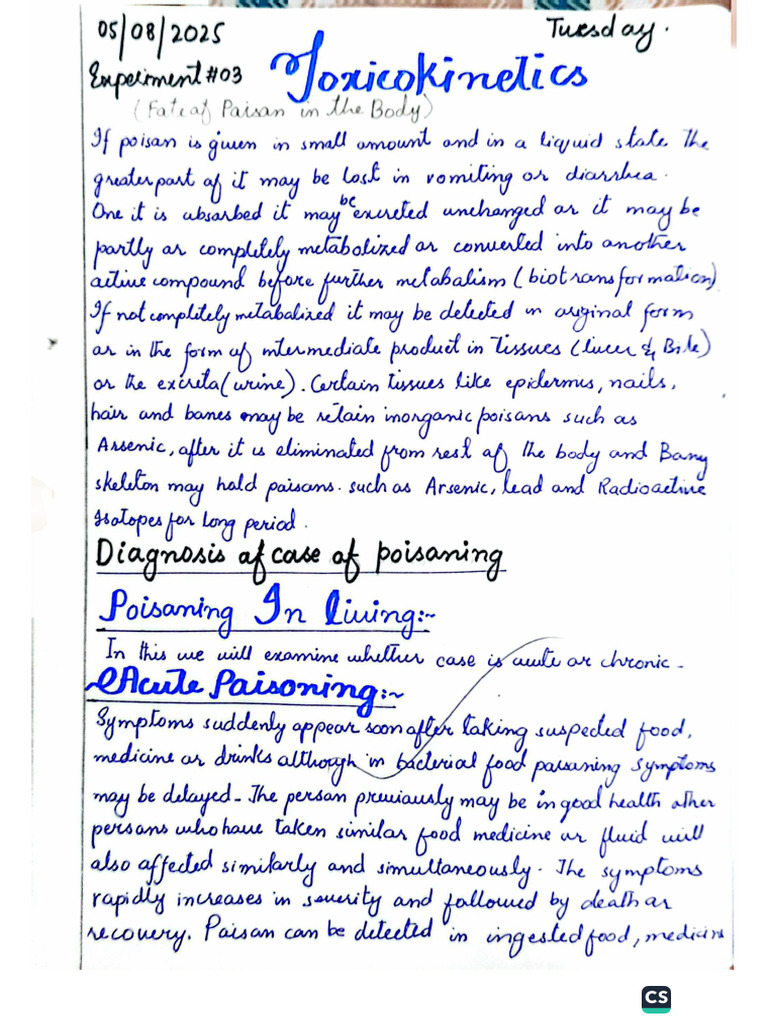 05/08/2025 Tuesday.
Experiment #03 Toxicokinetics
(Fate of Paisan in the Body)
If poisan is given in small amount and in a liquid state. The
greater part of it may be lost in vomiting or diarrhea.
One it is absorbed it may be excreted unchanged or it may be
partly or completely metabolized or converted into another
active compound before further metabalism (biotransformation)
If not completely metabolized it may be detected in original form
or in the form of intermediate product in tissues (liver & Bile)
or the excreta (urine). Certain tissues like epidermis, nails,
hair and banes may be retain inorganic poisans such as
Arsenic, after it is eliminated from rest of the body and Bany
skeleton may hold paisans. such as Arsenic, lead and Radioactive
Isotopes for long period.
Diagnosis of case of poisaning
Poisaning In Living:~
In this we will examine whether case is acute or chronic -
Acute Paisoning:~
Symptoms suddenly appear soon after taking suspected food,
medicine or drinks although in bacterial food paisaning symptoms
may be delayed - The person previously may be in good health other
persans who have taken similar food medicine or fluid will
also affected similarly and simultaneously. The symptoms
rapidly increases in severity and followed by death or
recovery. Paisan can be detected in ingested food, medicine
CS